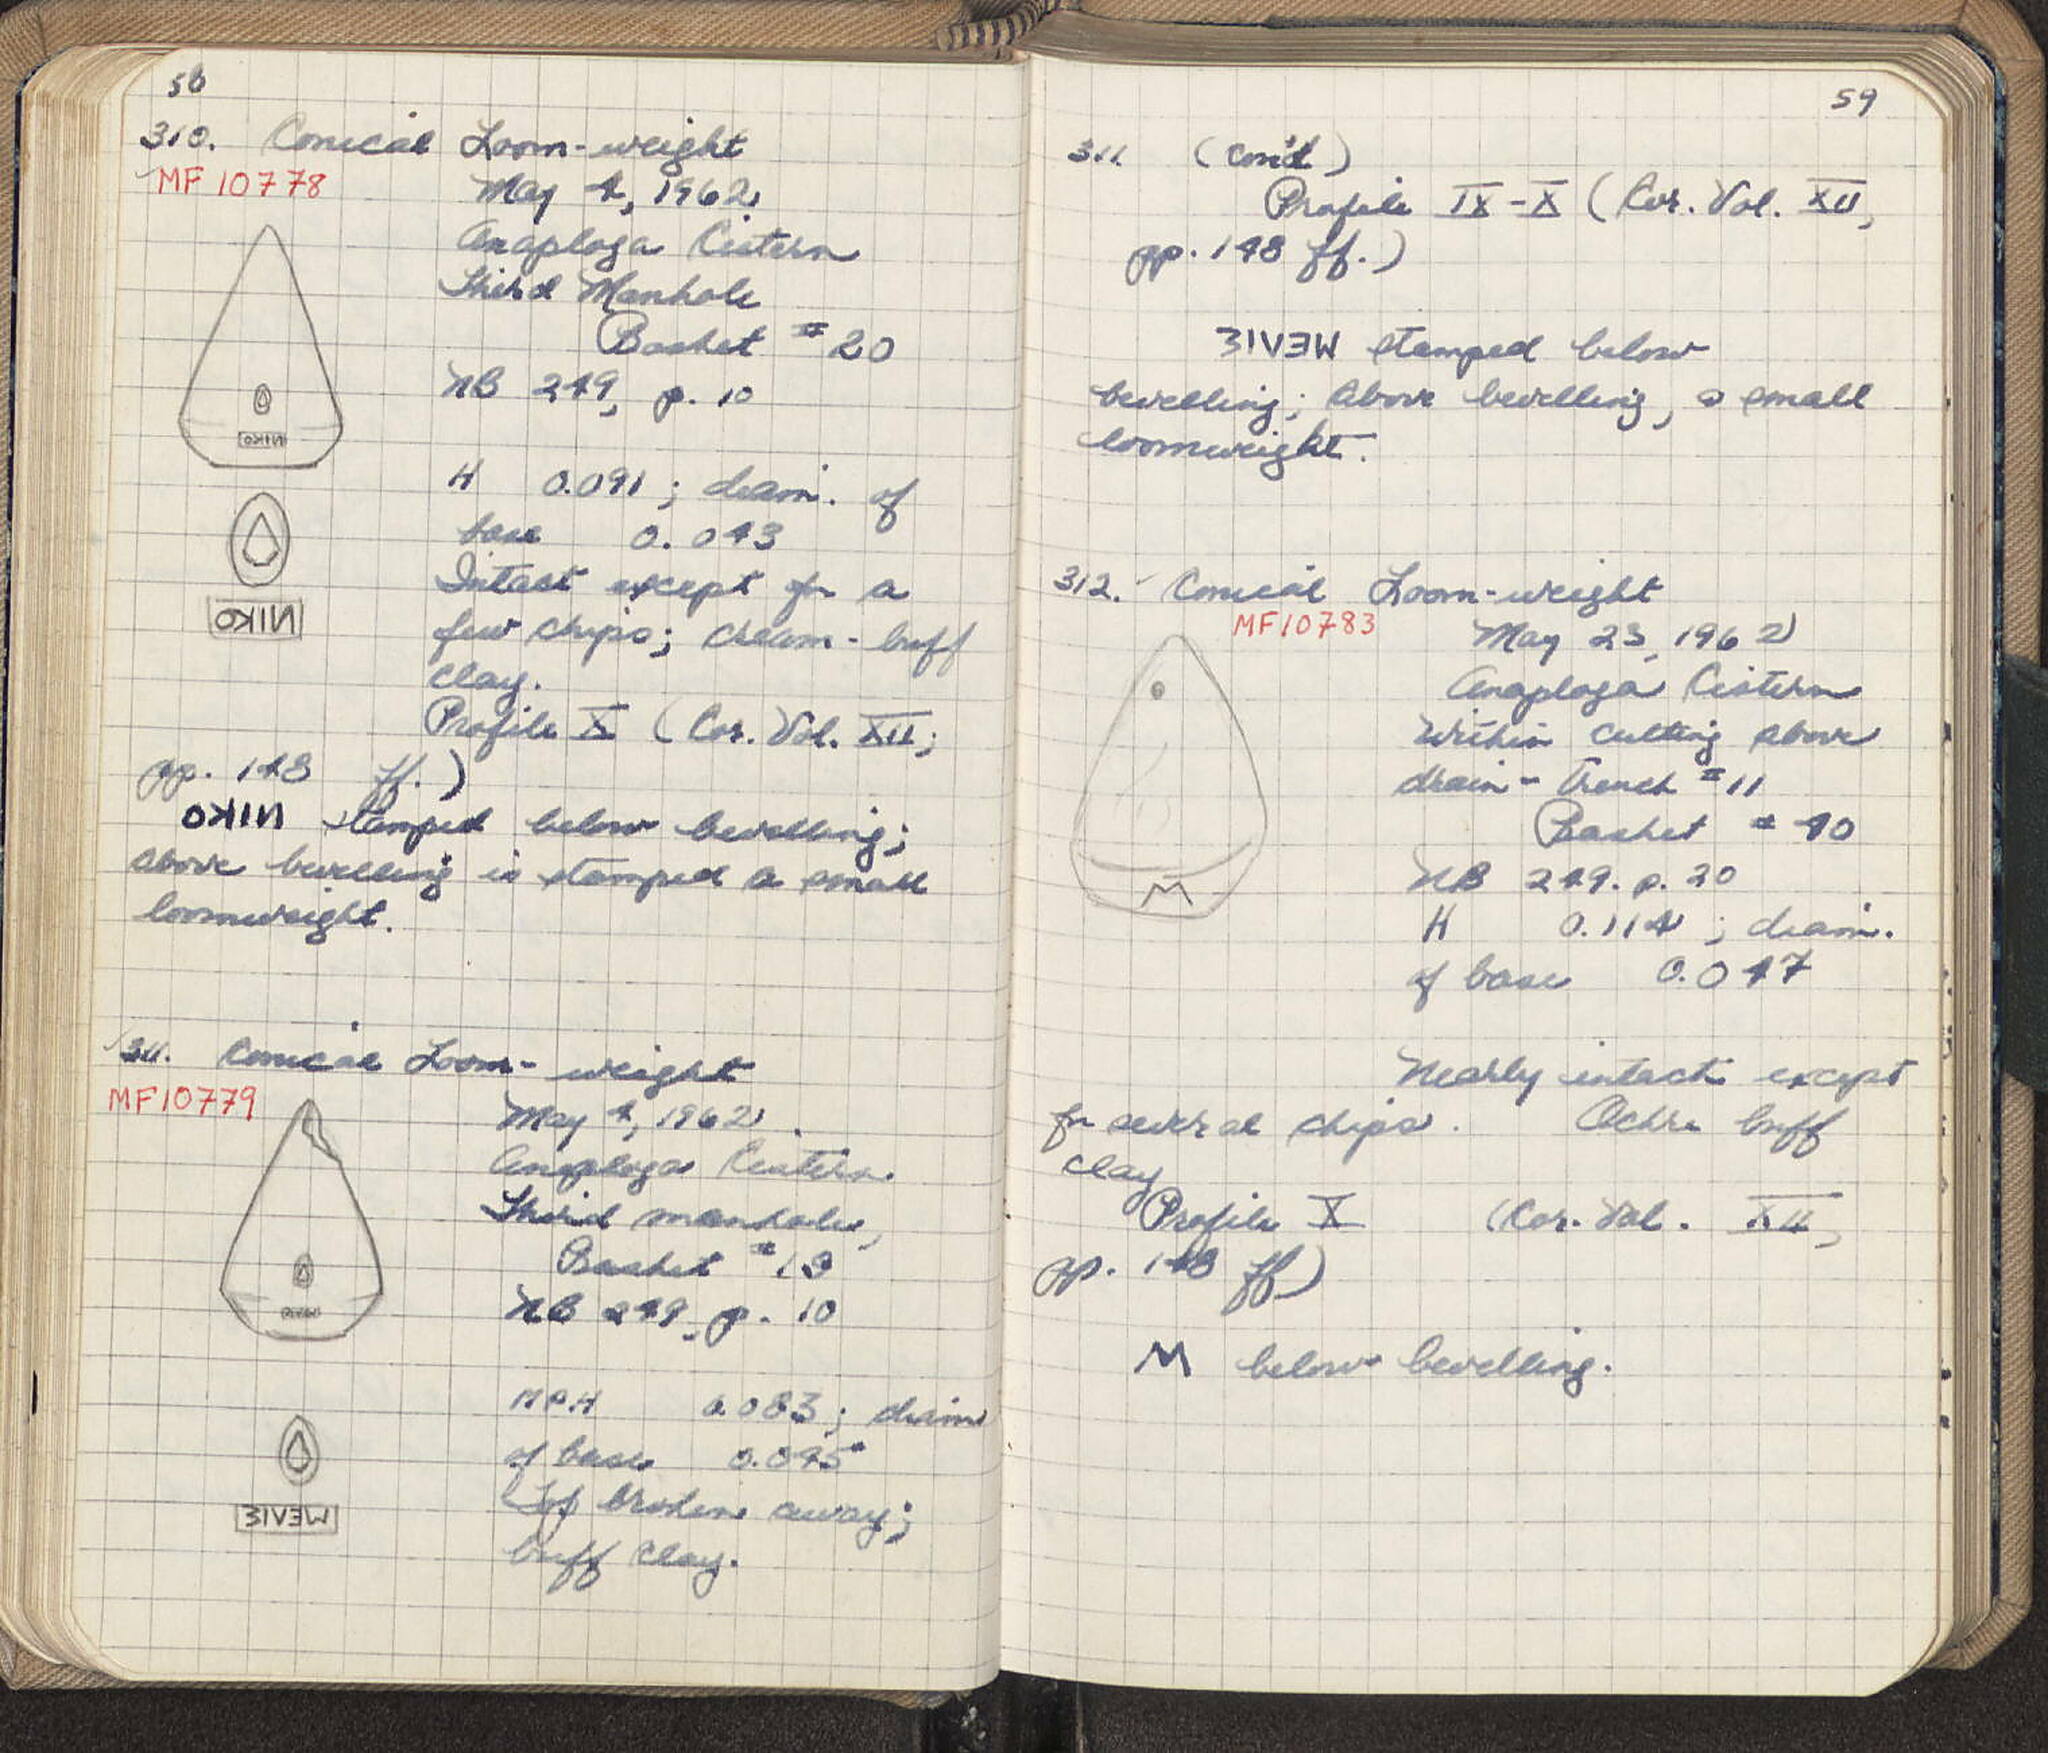 58
310. Conical Loom-weight
MF 10778
May 4, 1962
Anaploga Cistern
Third Manhole
Basket #20
NB 249, p. 10
NIKO
H 0.091; diam. of
base 0.043
Intact except for a
few chips; cream-buff
clay.
Profile X (Cor. Vol. XII;
pp. 148 ff.)
NIKO
NIKO stamped below bevelling;
above bevelling is stamped a small
loomweight.
311. Conical Loom-weight
MF10779
May 4, 1962.
Anaploga Cistern.
Third manhole,
Basket #18
NB 249, p. 10
MPH 0.083; diam
of base 0.045
Top broken away;
buff clay.
ƎIVƎW
59
311. (con'd)
Profile IX-X (Cor. Vol. XII,
pp. 148 ff.)
ƎIVƎW stamped below
bevelling; above bevelling, a small
loomweight.
312. Conical Loom-weight
MF10783
May 23, 1962
Anaploga Cistern
Within cutting above
drain - Trench #11
Basket #40
NB 249. p. 20
H 0.114; diam.
of base 0.047
M
Nearly intact except
for several chips. Ochre buff
clay
Profile X (Cor. Vol. XII,
pp. 148 ff)
M below bevelling.